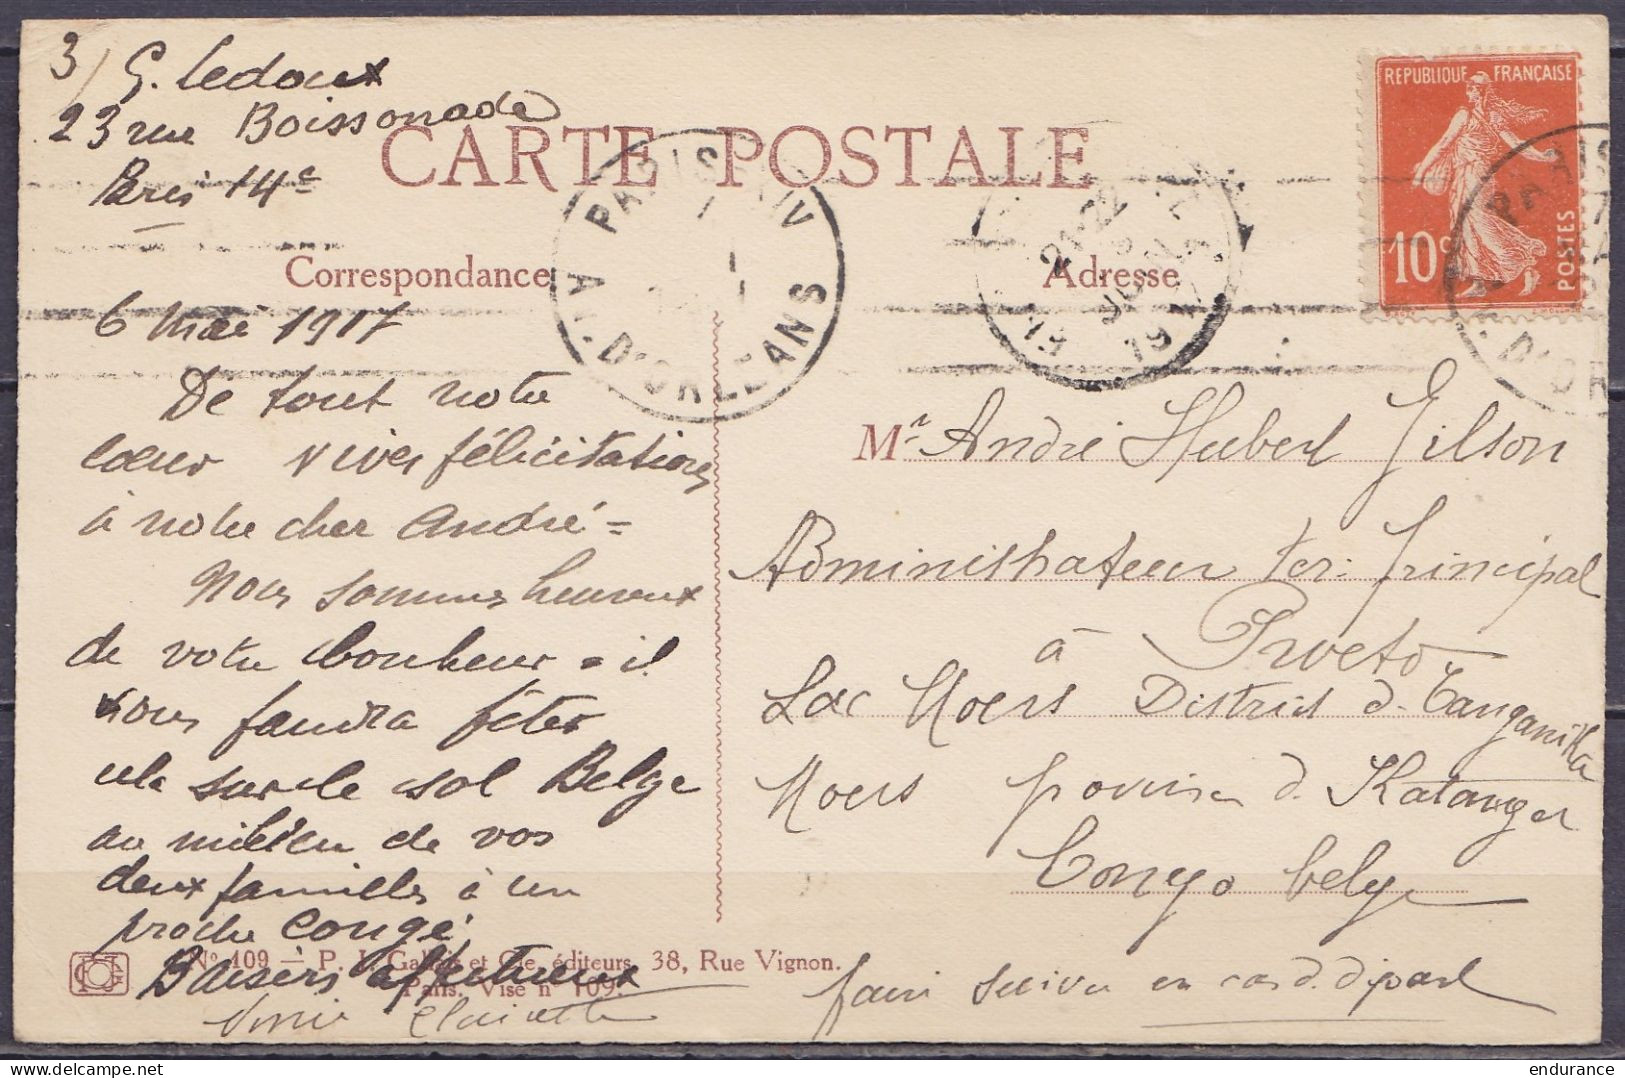 3/ G. Ledoux
23 rue Boissonade
Paris 14e
CARTE POSTALE
Correspondance
Adresse
REPUBLIQUE FRANÇAISE
10c
POSTES
PARIS XIV
AV. D'ORLEANS
21-22
6 mai 1917
De tout notre
coeur vives félicitations
à notre cher André =
Nous sommes heureux
de votre bonheur = il
nous faudra fêter
cela sur le sol Belge
au milieu de vos
deux familles à un
proche congé
Baisers affectueux
Clairette
Mr André Hubert Gilson
Administrateur ter: principal
à Pweto
Lac Moers District d. Tanganika
Moers province d. Katanga
Congo belge
faire suivre en cas d. départ
No 109 — P. J. Gallais et Cie, éditeurs, 38, Rue Vignon.
Paris. Visé no 109.
endurance